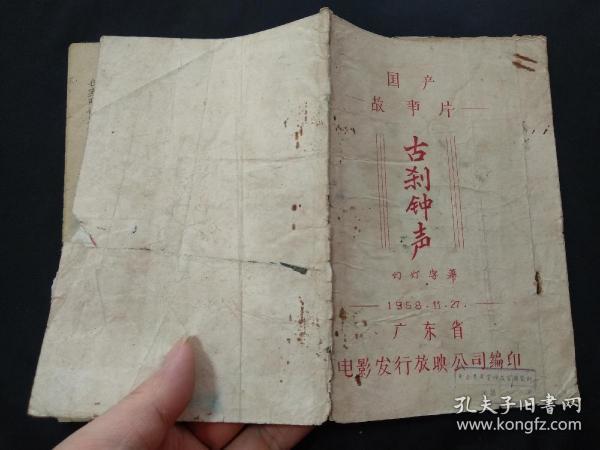 国产
故事片
古刹钟声
幻灯字幕
1958.11.27.
广东省
电影发行放映公司编印
孔夫子旧书网
www.kongfz.com